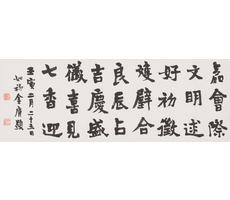 嘉會際
文明述
好初徵
雙璧合
良辰占
吉慶盛
徵喜見
七香迎
壬寅二月二十五日
如初金膺顯